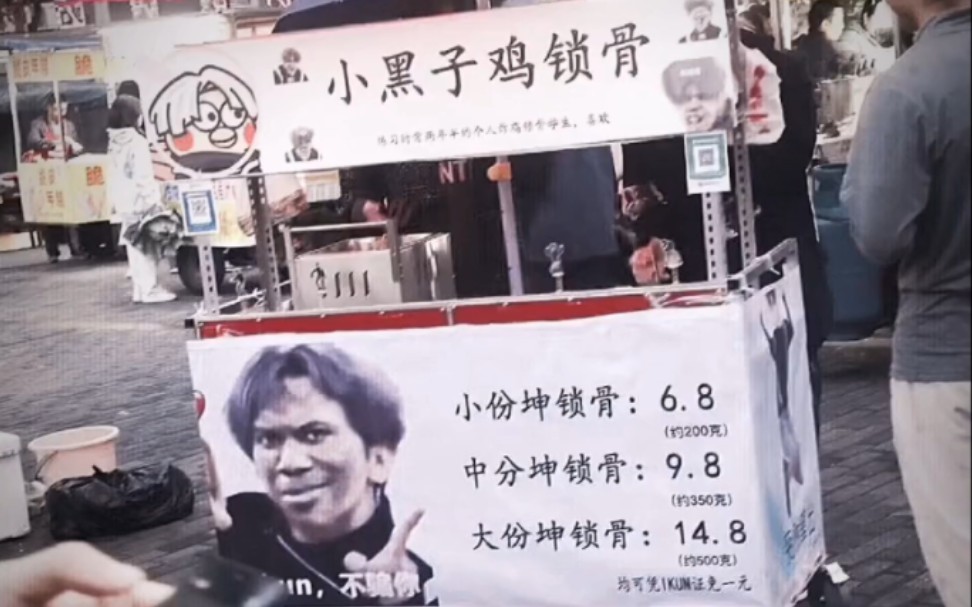 小黑子鸡锁骨
练习时常两年半的个人炸鸡待带学生，喜欢
小份坤锁骨：6.8
（约200克）
中分坤锁骨：9.8
（约350克）
大份坤锁骨：14.8
（约500克）
均可凭IKUN证免一元
un，不骗你
脆
脆
NT